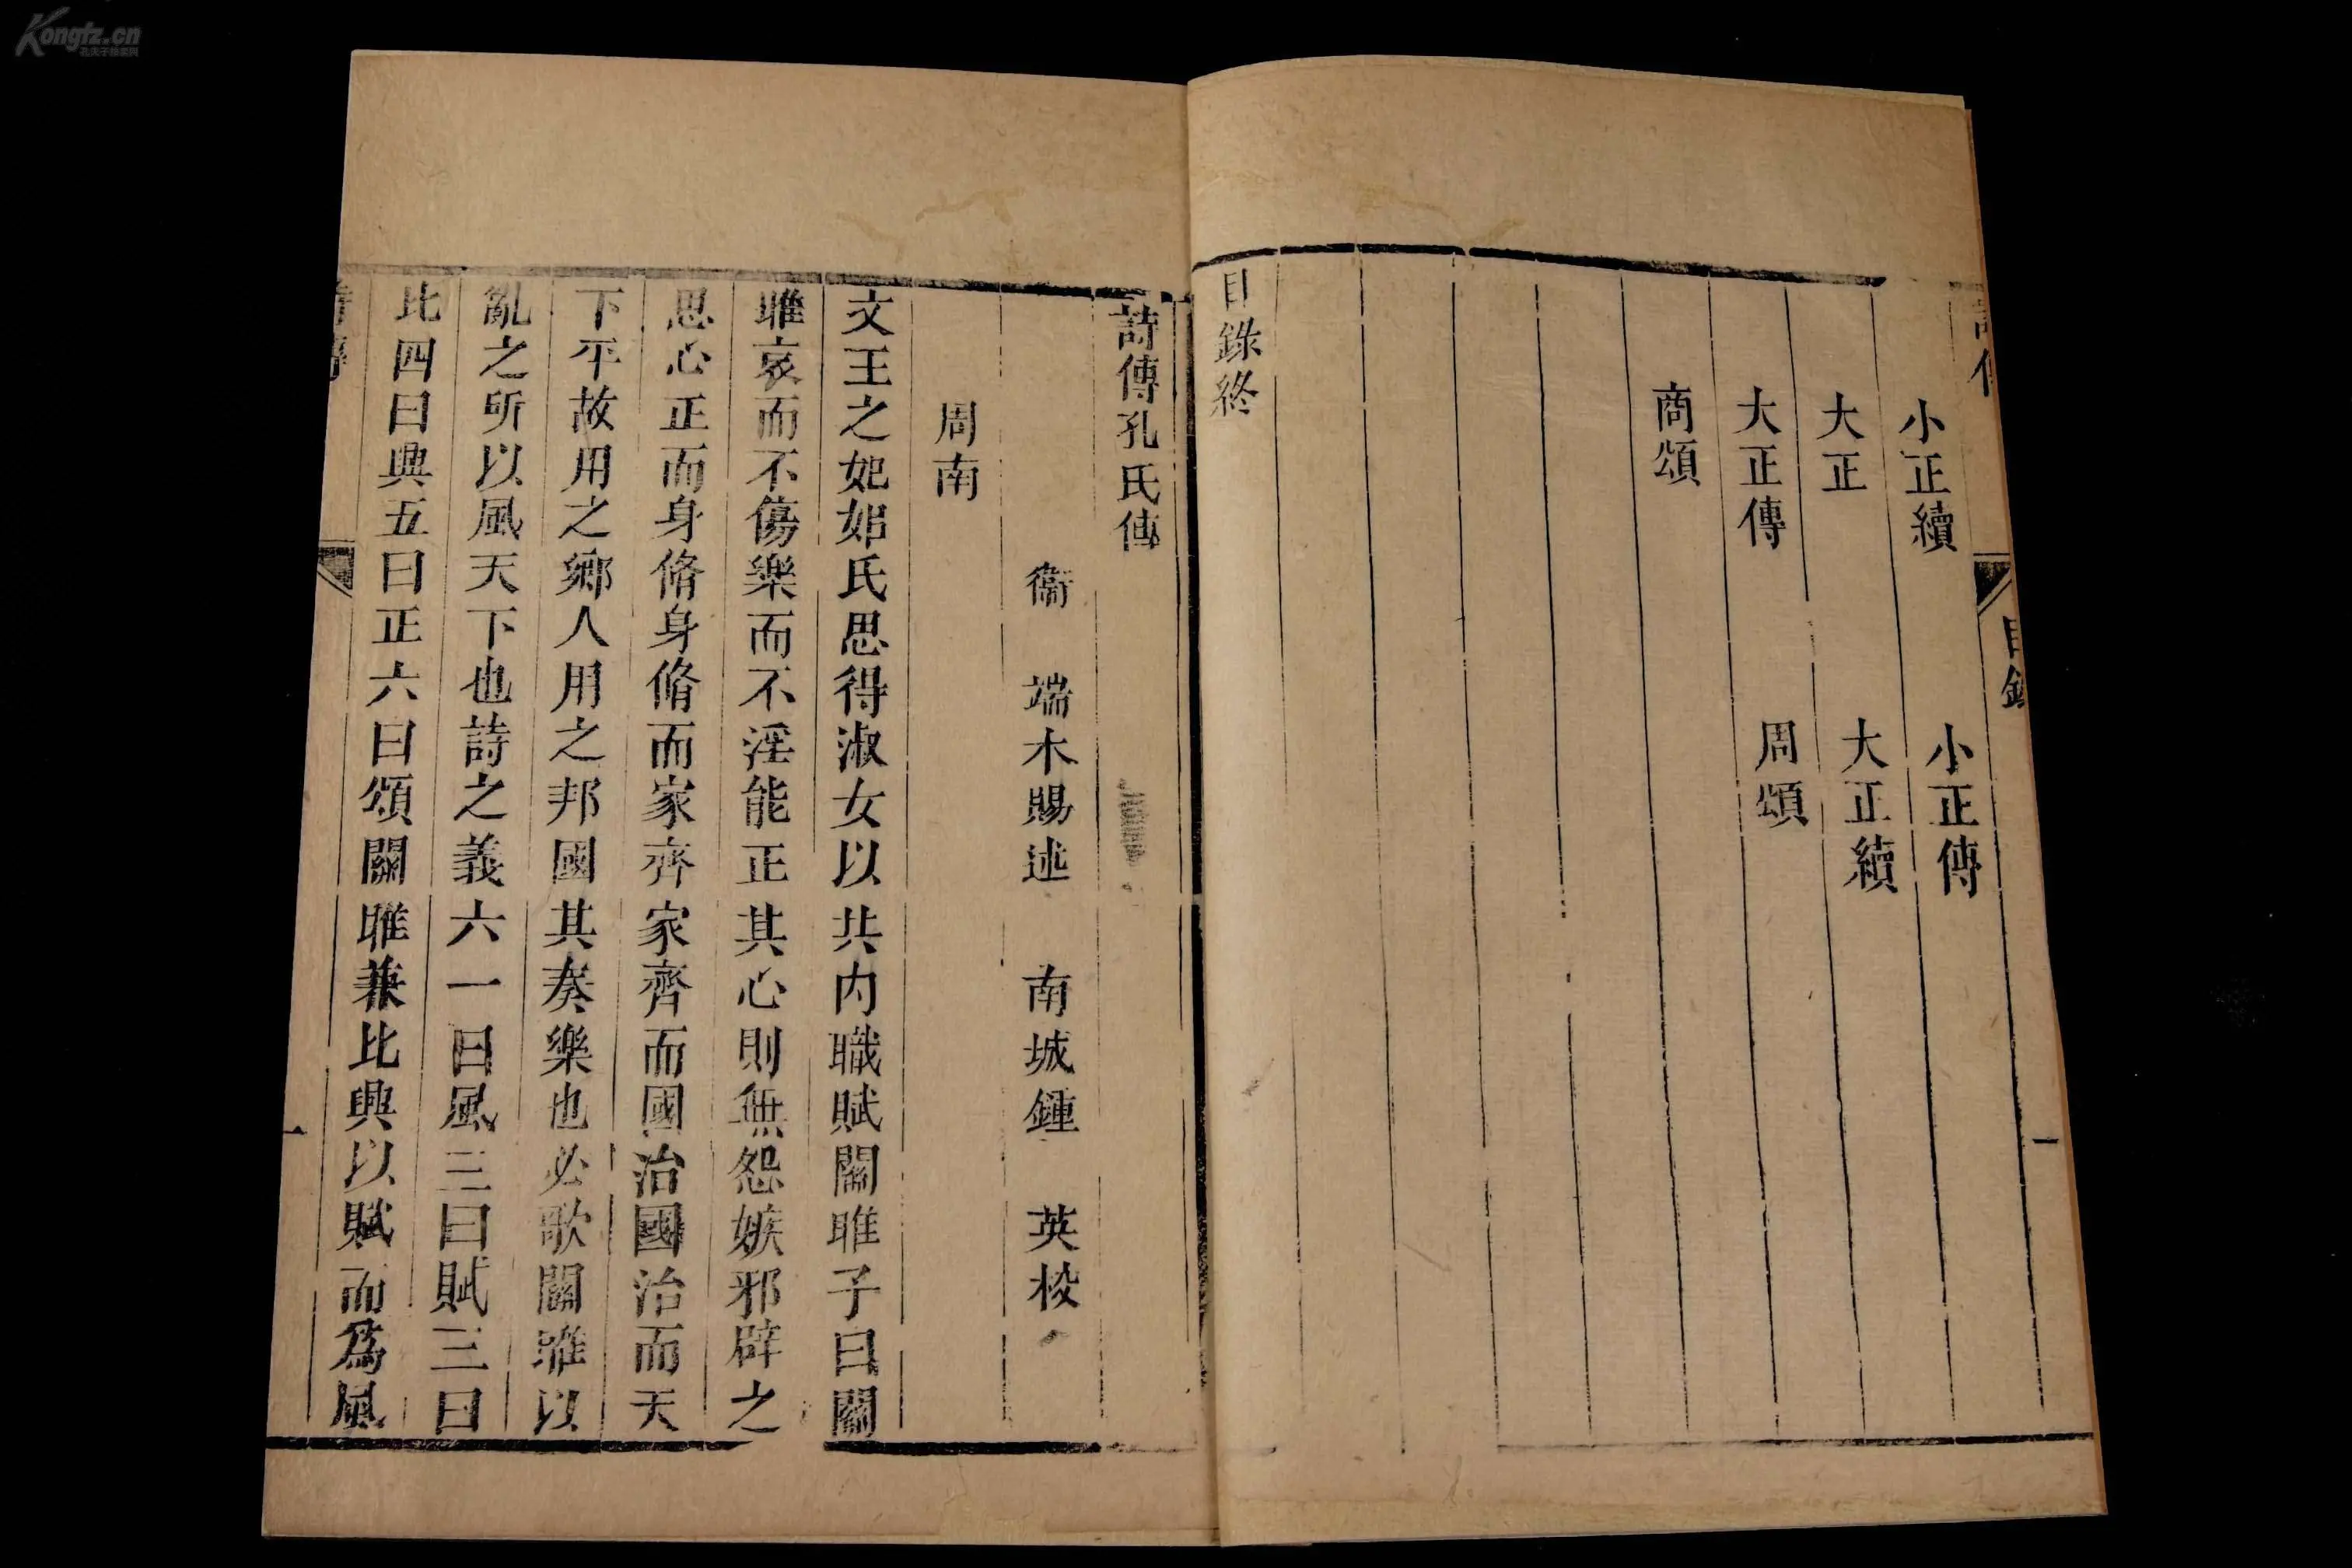 Kongfz.cn
小正續 小正傳
大正 大正續
大正傳 周頌
商頌
目錄終
目錄
一
詩傳孔氏傳
衞 端木賜述 南城鍾 英校
周南
文王之妃姒氏思得淑女以共内職賦關雎子曰關
雎哀而不傷樂而不淫能正其心則無怨嫉邪辟之
思心正而身脩身脩而家齊家齊而國治國治而天
下平故用之鄉人用之邦國其奏樂也必歌關雎以
亂之所以風天下也詩之義六一曰風二曰賦三曰
比四曰興五曰正六曰頌關雎兼比興以賦而為風
一